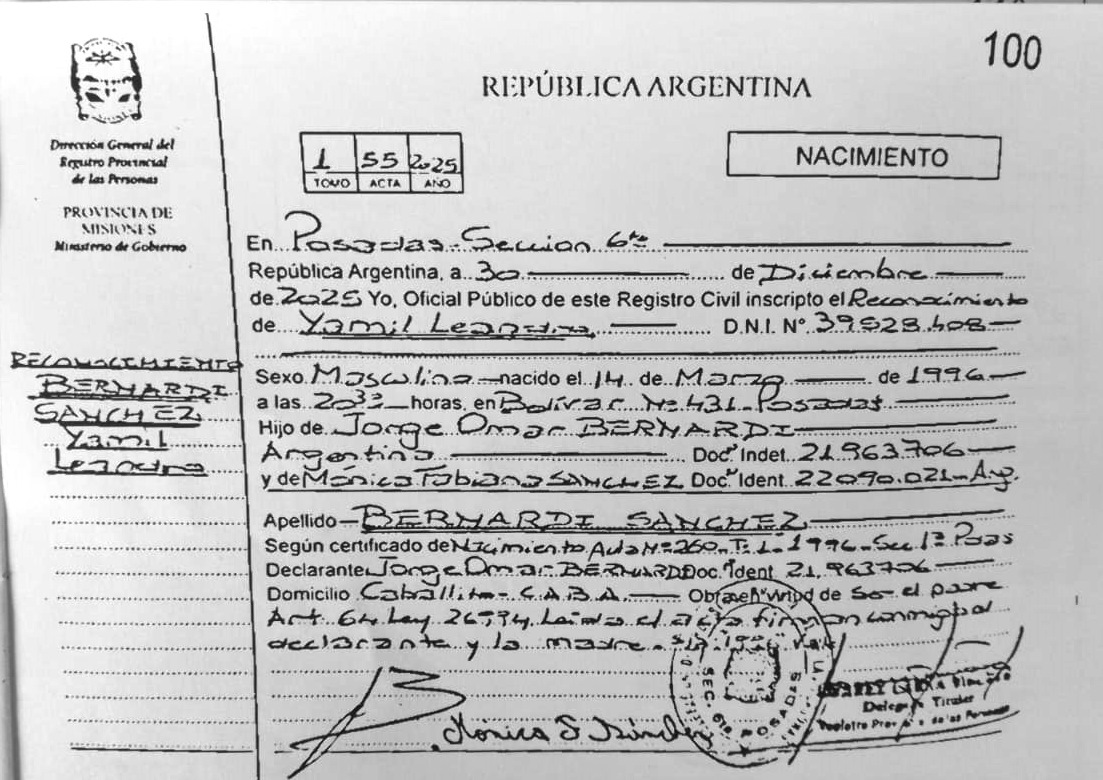 100
REPÚBLICA ARGENTINA
Dirección General del
Registro Provincial
de las Personas
PROVINCIA DE
MISIONES
Ministerio de Gobierno
1 55 2025
TOMO ACTA AÑO
NACIMIENTO
En Posadas - Sección 6ta
República Argentina, a 30 de Diciembre
de 2025 Yo, Oficial Público de este Registro Civil inscripto el Reconocimiento
de Yamil Leandro, D.N.I. Nº 39.528.408
RECONOCIMIENTO
BERNARDI
SANCHEZ
Yamil
Leandro
Sexo Masculino nacido el 14 de Marzo de 1996
a las 20 horas, en Bolívar Nº 431 - Posadas
Hijo de Jorge Omar BERNARDI
Argentino Doc. Indet. 21.963.706
y de Mónica Fabiana SANCHEZ Doc. Ident. 22090.021 - Arg.
Apellido BERNARDI SANCHEZ
Según certificado de Nacimiento Acta Nº 260 - T. 1 - 1996 - Sec 1ª Pdas
Declarante Jorge Omar BERNARDI Doc. Ident. 21.963706
Domicilio Caballito - C.A.B.A. Obra en Virtud de Ser el padre
Art. 64 Ley 26994 Leída el acta firman conmigo el
declarante y la madre.
SEC. 6ta POSADAS
Delegada Titular
Registro Prov. de las Personas